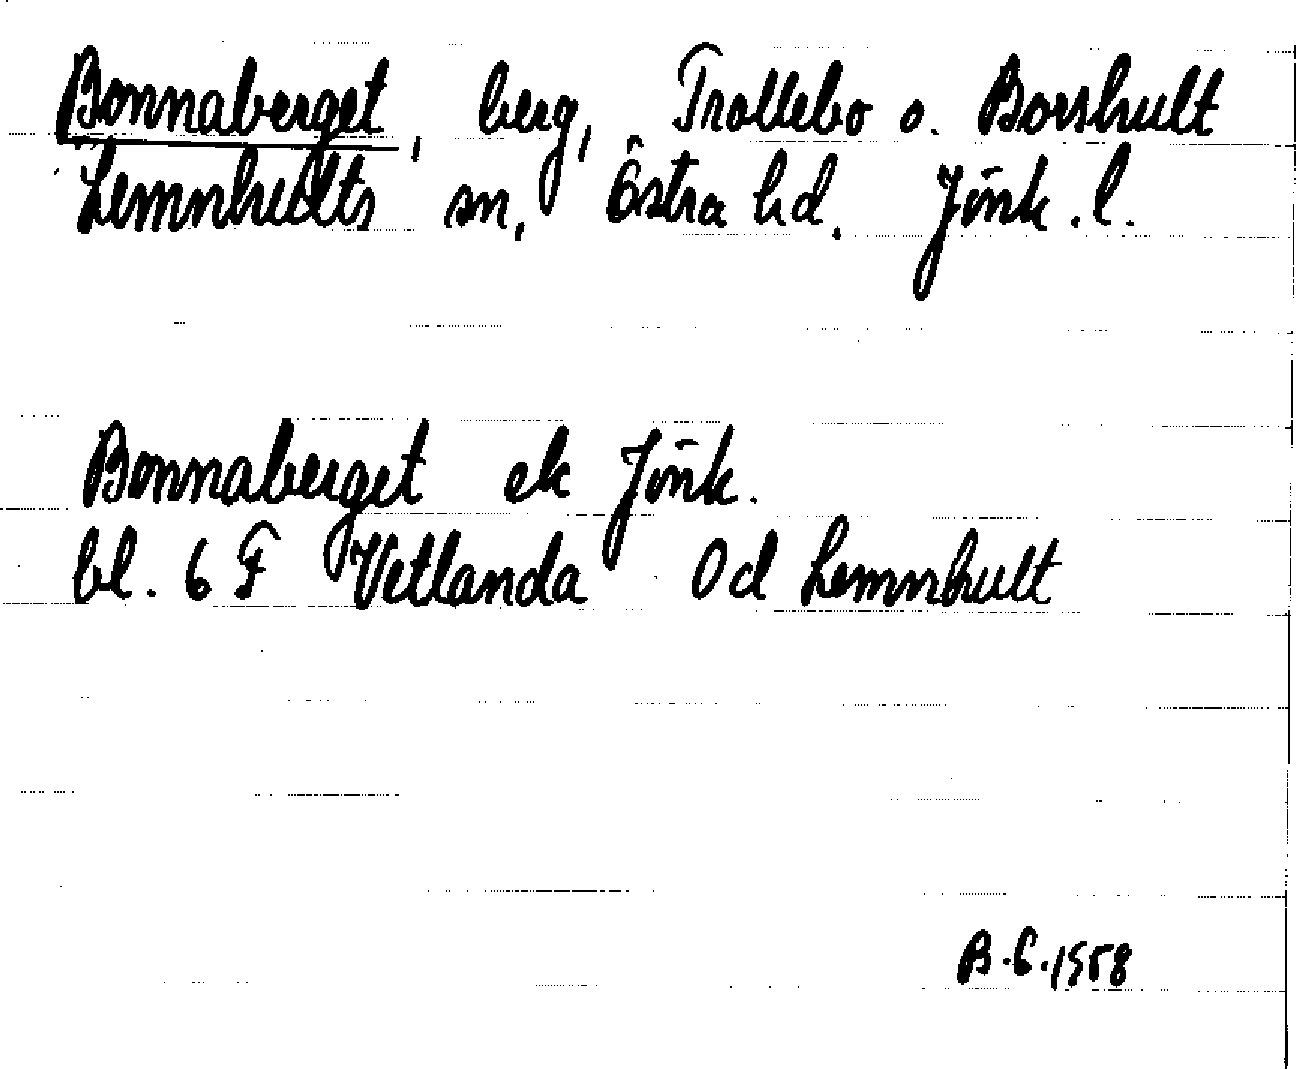 Bonnaberget, berg, Trollebo o. Borshult
Lemnhults sn, Östra hd. Jönk. l.
Bonnaberget ek Jönk.
bl. 6 F Vetlanda Od Lemnhult
B.G.1958